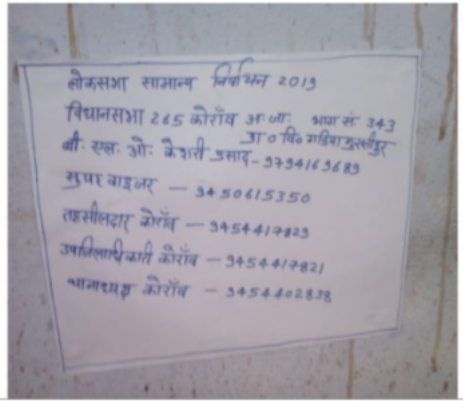 लोकसभा सामान्य निर्वाचन 2019
विधानसभा 265 कोराँव अ.जा. भाग सं 343
प्रा० वि०
बी. एल. ओ. केशरी प्रसाद - 9794169689
सुपरवाइजर — 9450615350
तहसीलदार कोराँव — 9454417829
उपजिलाधिकारी कोराँव — 9454417821
थानाध्यक्ष कोराँव — 9454402838